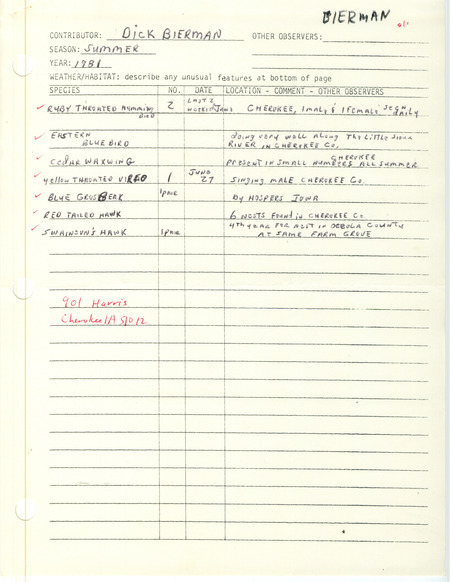 BIERMAN
CONTRIBUTOR: DICK BIERMAN OTHER OBSERVERS:
SEASON: SUMMER
YEAR: 1981
WEATHER/HABITAT: describe any unusual features at bottom of page
SPECIES NO. DATE LOCATION - COMMENT - OTHER OBSERVERS
RUBY THROATED HUMMING BIRD 2 LAST 2 WEEKS JUNE CHEROKEE, 1 MALE & 1 FEMALE SEEN DAILY
EASTERN BLUEBIRD doing very well along The Little Sioux
RIVER IN CHEROKEE CO.
Cedar WAXWING PRESENT IN SMALL NUMBERS CHEROKEE ALL SUMMER
yellow THROATED VIREO 1 JUNE 27 SINGING MALE CHEROKEE CO.
BLUE GROSBEAK 1 PAIR by HOSPERS IOWA
RED TAILED HAWK 6 NESTS FOUND IN CHEROKEE CO.
SWAINSON'S HAWK 1 PAIR 4TH YEAR FOR NEST IN OCEOLA COUNTY
AT SAME FARM GROVE
901 Harris
Cherokee IA 51012